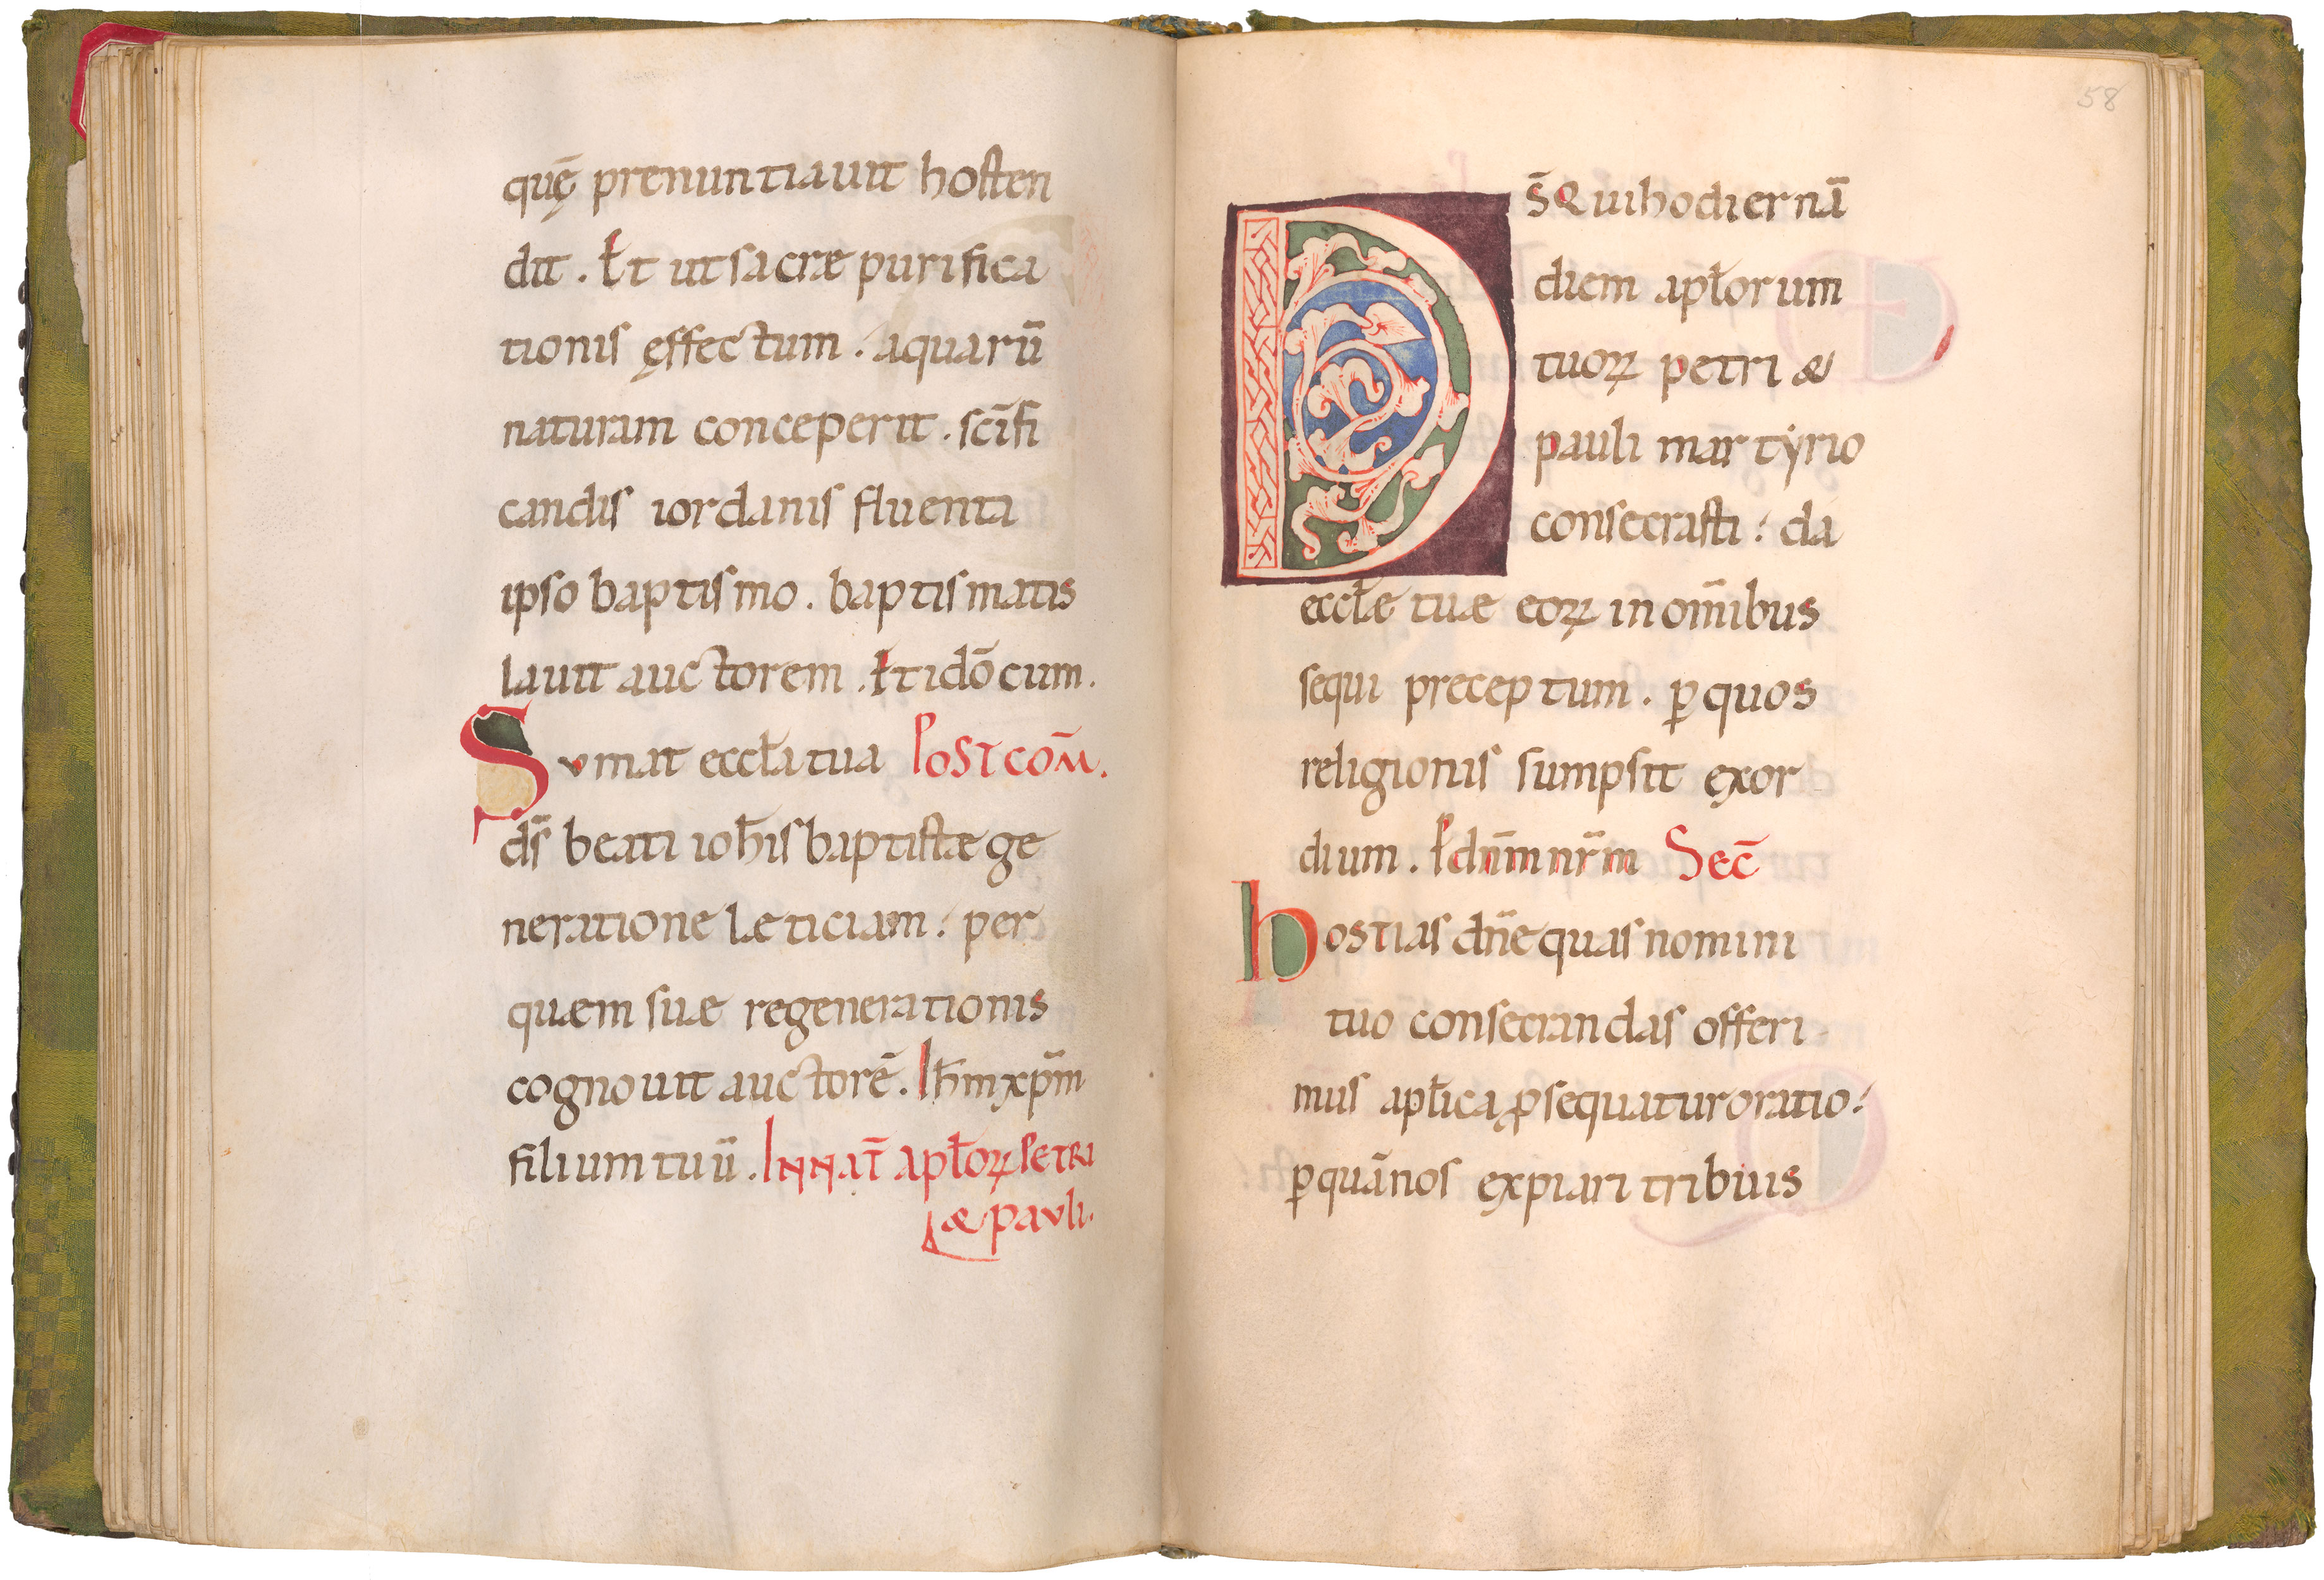 quę̄ prenuntiauit hosten
dit. Et ut sacræ purifica
tionis ęffectum. aquarū
naturam conceperit. sc̄ifi
candis iordanis fluenta
ipso baptismo. baptismatis
lauit auctorem. Et idō cum.
Sumat eccƚa tua Post com̄.
ds̄ beati ioħis baptistæ ge
neratione læticiam. per
quæm suæ regenerationis
cognouit auctorē. Iħm xp̄m
filium tuū. In nat̄ apƚoꝝ petri
& pauli.
58
Ds̄ Qui hodiernā
diem apƚorum
tuoꝝ petri &
pauli martẏrio
consecrasti. da
eccƚæ tuæ eoꝝ in om̄ibus
sequi preceptum. ꝑ quos
religionis sumpsit exor
dium. P dn̄m nr̄m Sec̄
hostias dn̄e quas nomini
tuo consecrandas offeri
mus apƚica ꝓsequatur oratio.
ꝑ quā nos expiari tribuis